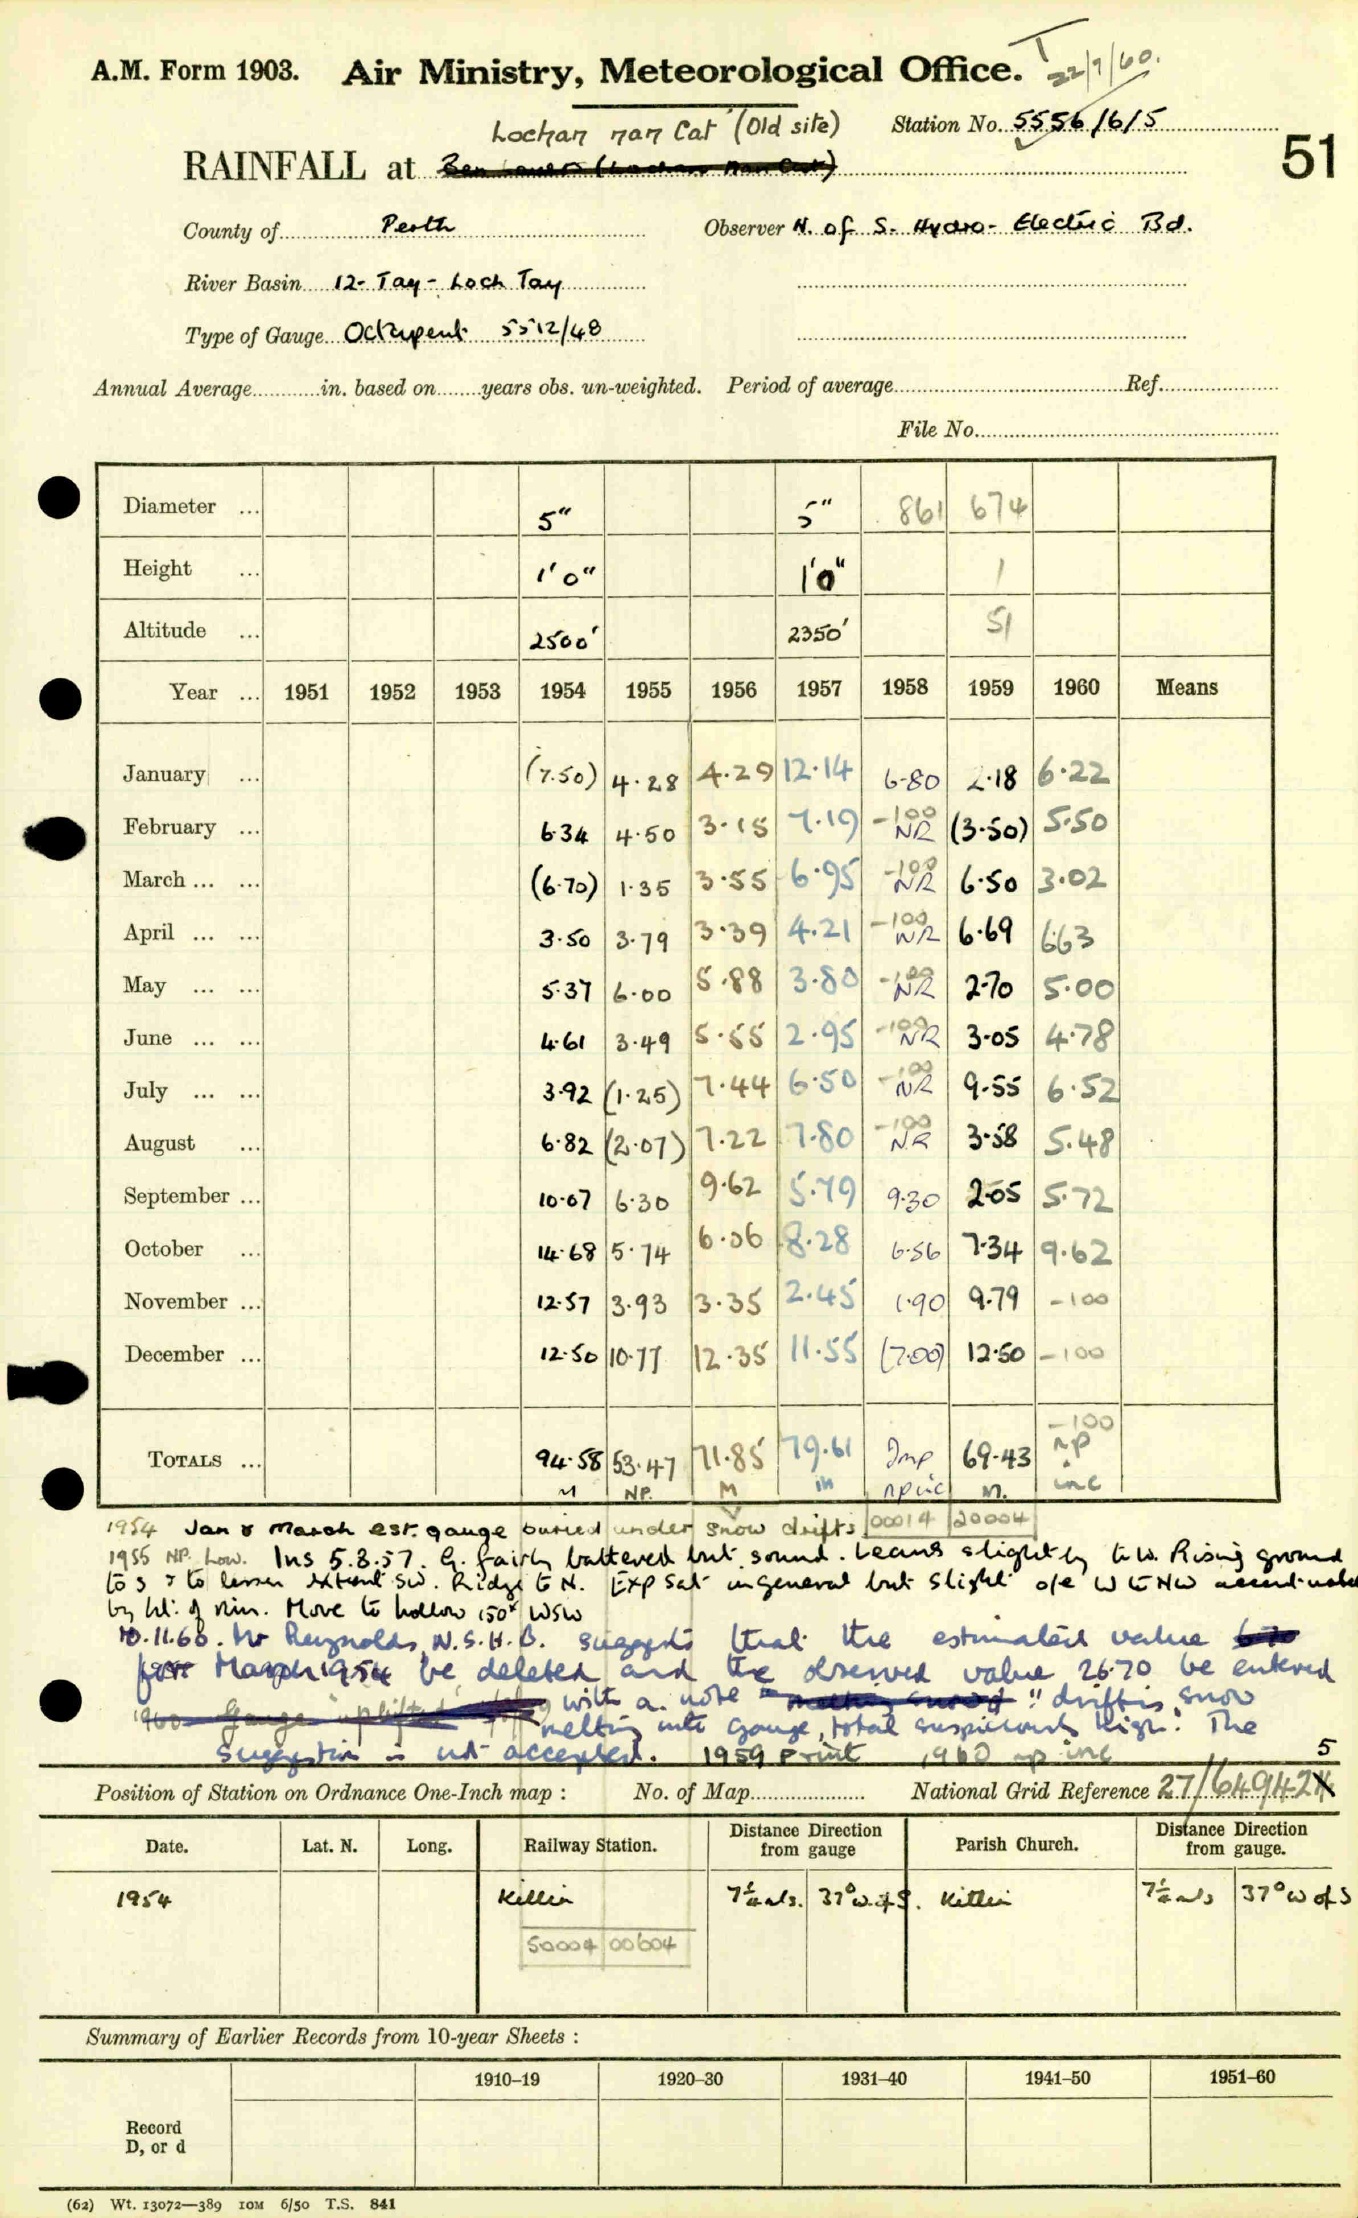 A.M. Form 1903. Air Ministry, Meteorological Office. T 22/9/60.
Lochan nan Cat (Old site) Station No. 5556/6/5
RAINFALL at Ben Lawers (Lochan Nan Cat) 51
County of Perth Observer N. of S. Hydro-Electric Bd.
River Basin 12- Tay - Loch Tay
Type of Gauge Octapent 5512/48
Annual Average in. based on years obs. un-weighted. Period of average Ref.
File No.
Diameter ... 5" 5" 861 674
Height ... 1'0" 1'0" 1
Altitude ... 2500' 2350' 51
Year ... 1951 1952 1953 1954 1955 1956 1957 1958 1959 1960 Means
January ... (7.50) 4.28 4.29 12.14 6.80 2.18 6.22
February ... 6.34 4.50 3.15 7.19 -100 NR (3.50) 5.50
March ... ... (6.70) 1.35 3.55 6.95 -100 NR 6.50 3.02
April ... ... 3.50 3.79 3.39 4.21 -100 NR 6.69 6.63
May ... ... 5.37 6.00 5.88 3.80 -100 NR 2.70 5.00
June ... ... 4.61 3.49 5.55 2.95 -100 NR 3.05 4.78
July ... ... 3.92 (1.25) 7.44 6.50 -100 NR 9.55 6.52
August ... 6.82 (2.07) 7.22 7.80 -100 NR 3.58 5.48
September ... 10.07 6.30 9.62 5.79 9.30 2.05 5.72
October ... 14.68 5.74 6.06 8.28 6.56 7.34 9.62
November ... 12.57 3.93 3.35 2.45 1.90 9.79 -100
December ... 12.50 10.77 12.35 11.55 (7.00) 12.50 -100
-100
TOTALS ... 94.58 53.47 71.85 79.61 Imp 69.43 np
M NP. M m np inc M. inc
1954 Jan & March est. gauge buried under snow drifts 00014 20004
1955 NP. Low. Ins 5.8.57. G. fairly battered but sound. Leans slightly to W. Rising ground
to S & to lesser extent SW. Ridge to N. Exp sat in general but slight o/e W to NW
by ht. of rim. Move to hollow 150x WSW
10.11.60. Mr Reynolds, N.S.H.B. suggests that the estimated value 6.70
for March 1954 be deleted and the observed value 26.70 be entered
1960 Gauge uplifted with a note "melting snow" "drifting snow
melting into gauge, total suspiciously high." The
suggestion is not accepted. 1959 Print 1960 np inc
5
Position of Station on Ordnance One-Inch map : No. of Map National Grid Reference 27/649424
Date. Lat. N. Long. Railway Station. Distance Direction from gauge Parish Church. Distance Direction from gauge.
1954 Killin 7¼ mls. 37° W of S. Killin 7¼ mls 37° W of S
50004 00604
Summary of Earlier Records from 10-year Sheets :
1910–19 1920–30 1931–40 1941–50 1951–60
Record
D, or d
(62) Wt. 13072—389 10M 6/50 T.S. 841